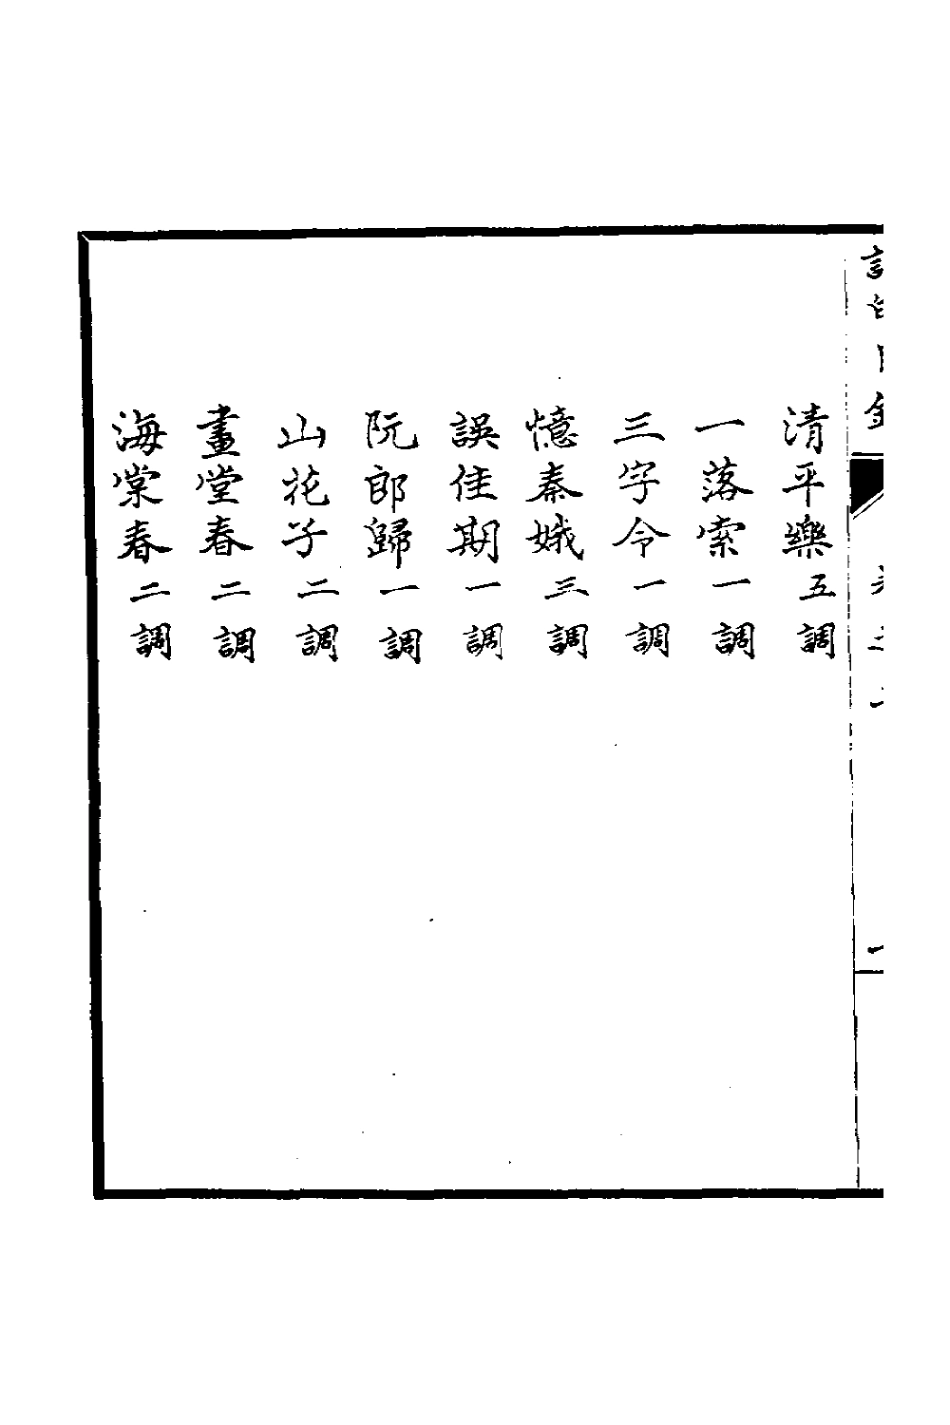 清平樂五調
一落索一調
三字令一調
憶秦娥三調
誤佳期一調
阮郎歸一調
山花子二調
畫堂春二調
海棠春二調